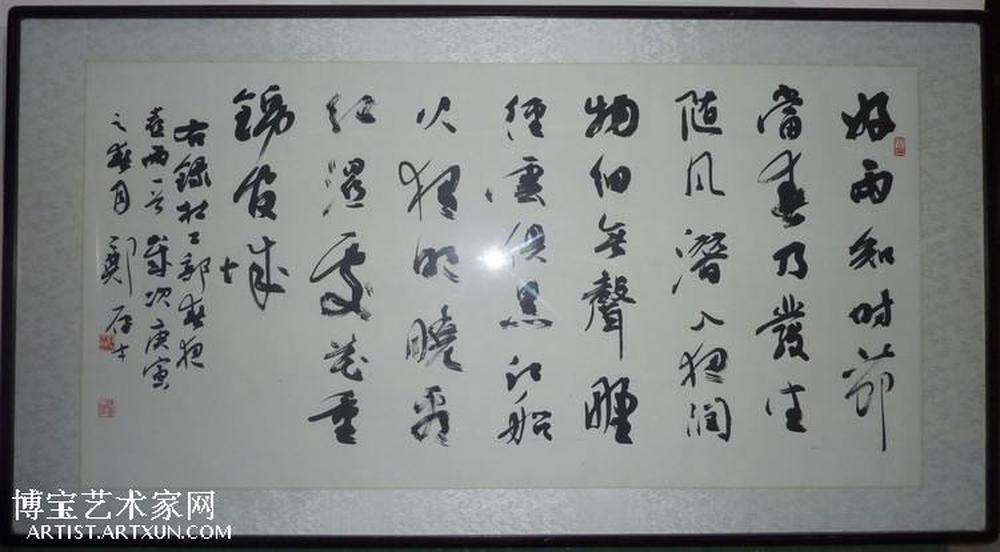 好雨知时節
當春乃發生
随风潛入夜润
物细無聲野
徑雲俱黑江船
火独明曉看
红濕處花重
錦官城
右録杜工部春夜
喜雨一首 歲次庚寅
之春月 鄭
博宝艺术家网
ARTIST.ARTXUN.COM